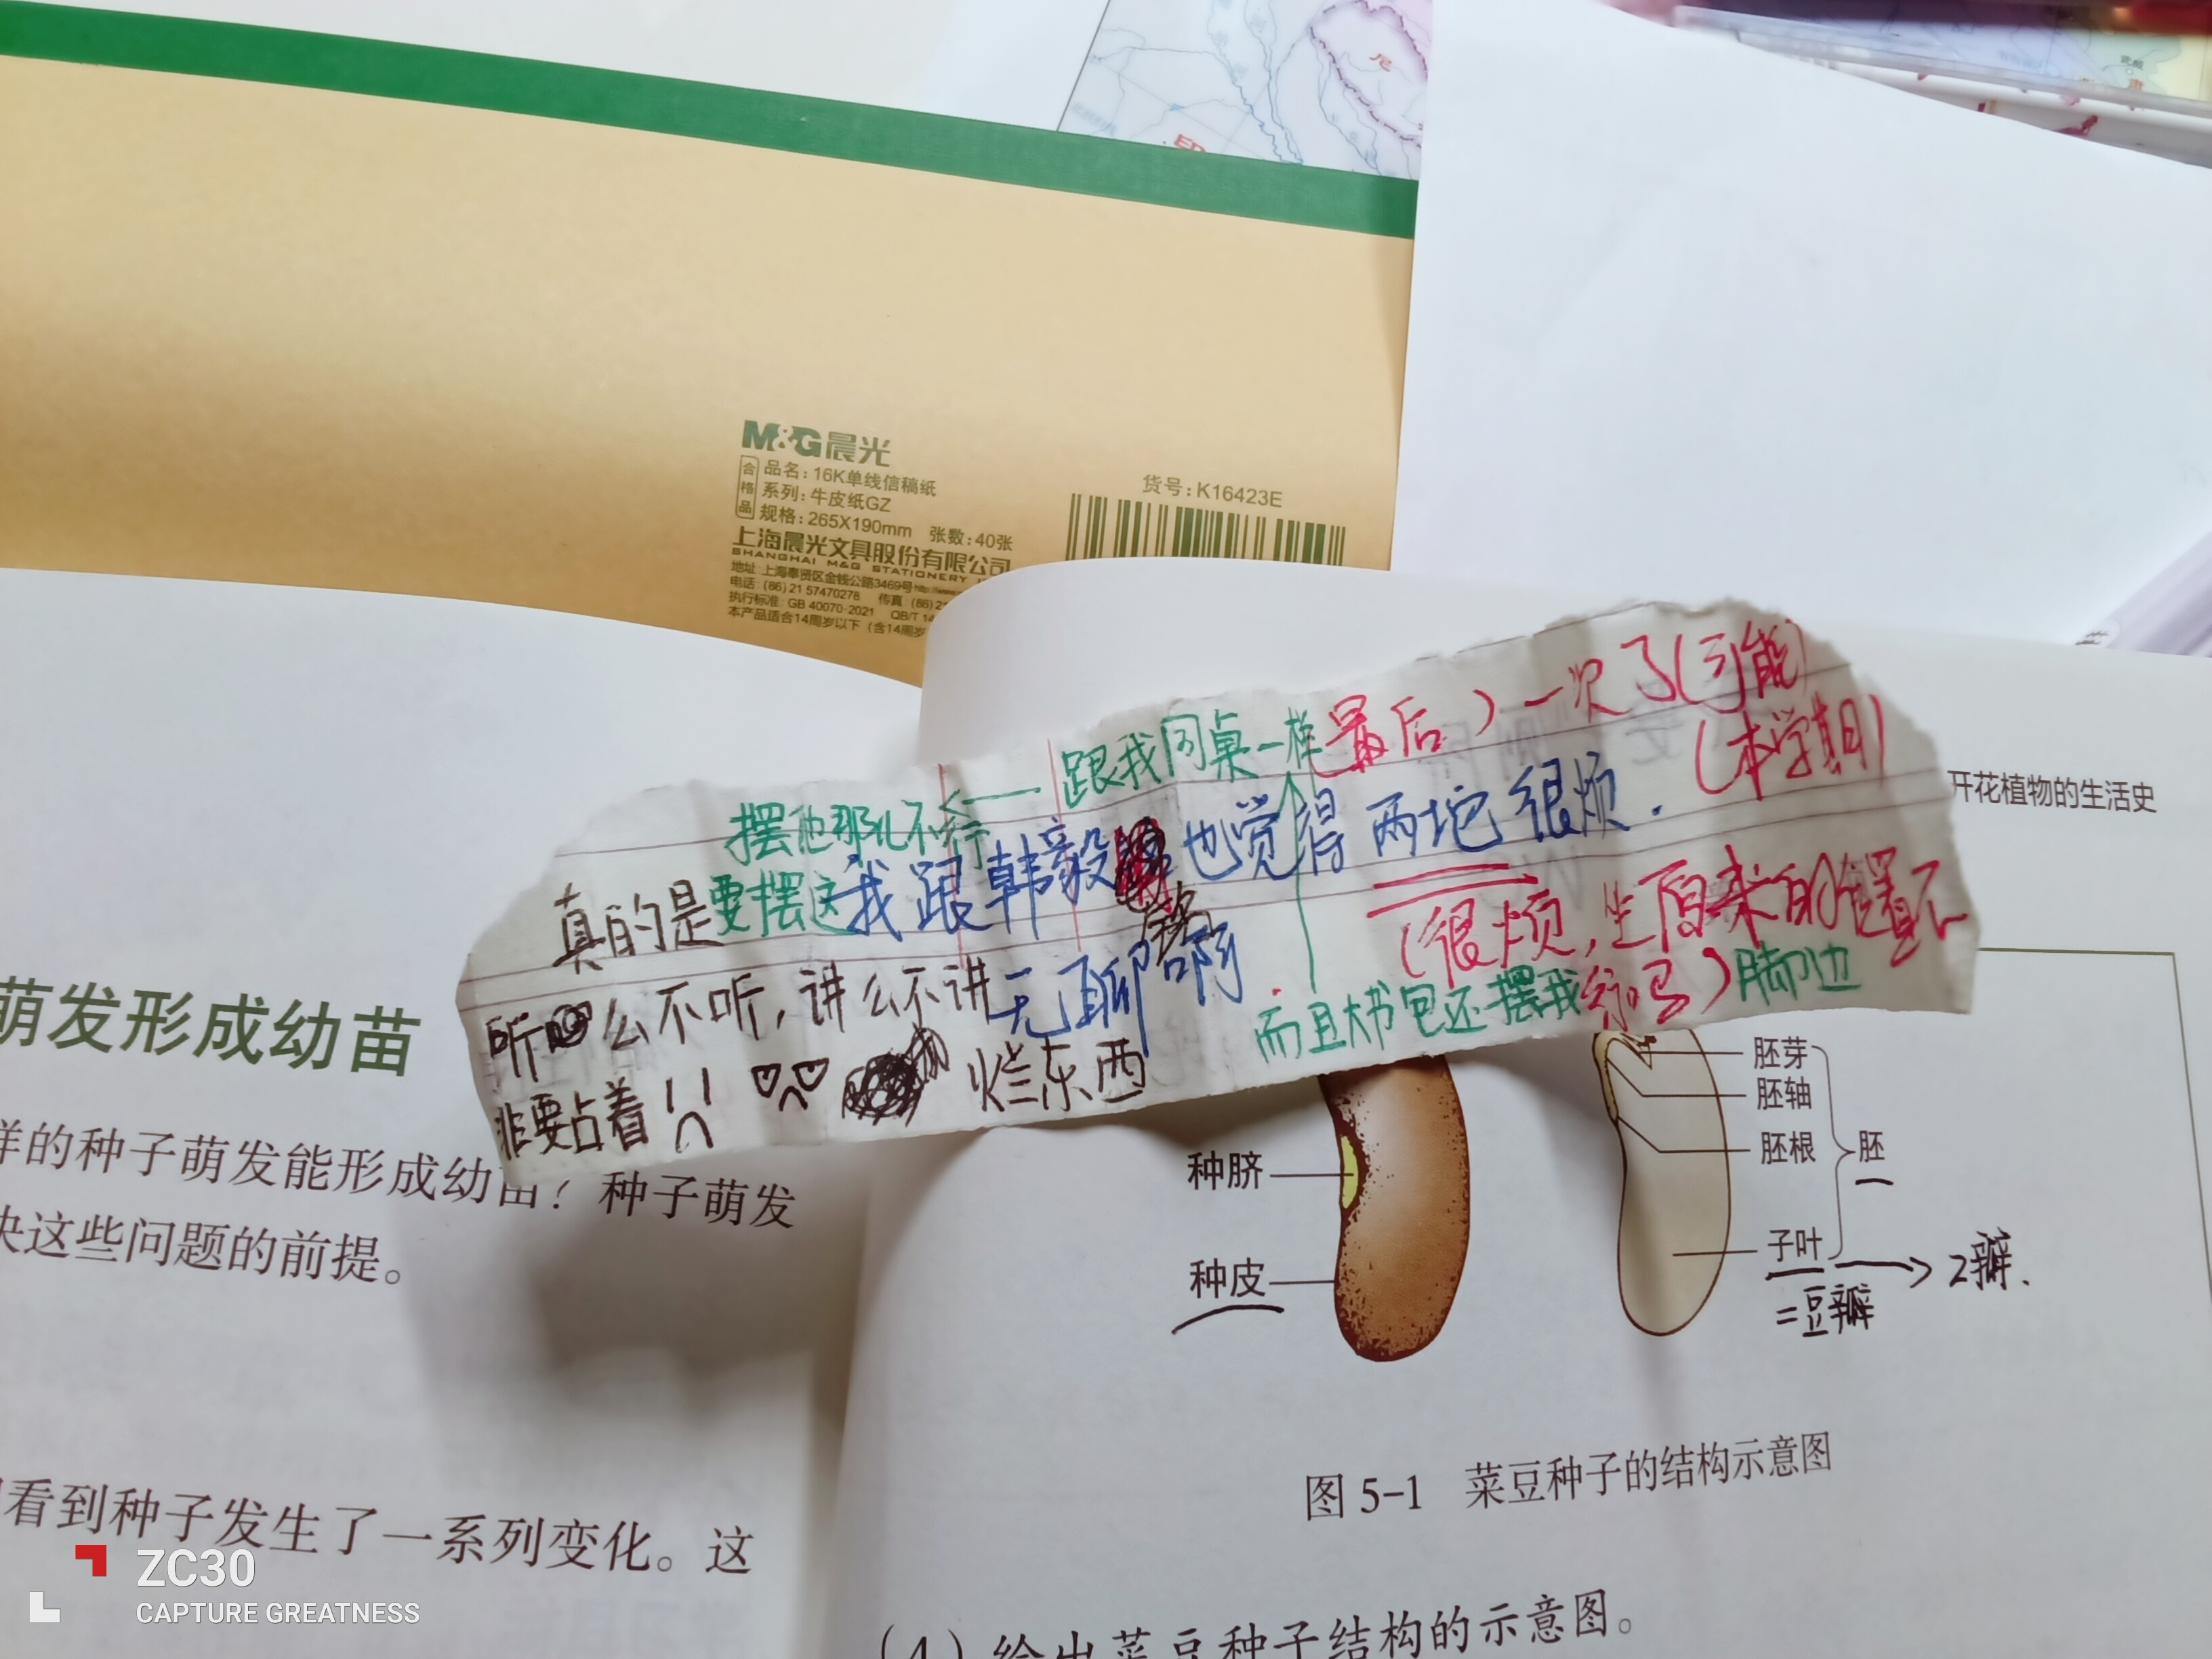 尼
印
M&G晨光
合格品
品名：16K单线信稿纸
系列：牛皮纸GZ
规格：265X190mm 张数：40张
上海晨光文具股份有限公司
SHANGHAI M&G STATIONERY
地址：上海奉贤区金钱公路3469号
电话：(86) 21 57470278 传真：(86) 2
执行标准：GB 40070-2021 QB/T 14
本产品适合14周岁以下（含14周岁
货号：K16423E
开花植物的生活史
跟我同桌一样最后）一次了（可能）
（本学期）
摆他那儿不行
我跟韩毅 也觉得两坨很烦.
真的是要摆这
（很烦,坐原来的位置不
行吗）
听 么不听，讲么不讲无聊啊
而且大书包还摆我脚边
非要占着 烂东西
萌发形成幼苗
样的种子萌发能形成幼苗？种子萌发
决这些问题的前提。
看到种子发生了一系列变化。这
种脐
种皮
胚芽
胚轴
胚根
子叶
胚
2瓣.
=豆瓣
图 5-1 菜豆种子的结构示意图
（4）绘出菜豆种子结构的示意图。
ZC30
CAPTURE GREATNESS